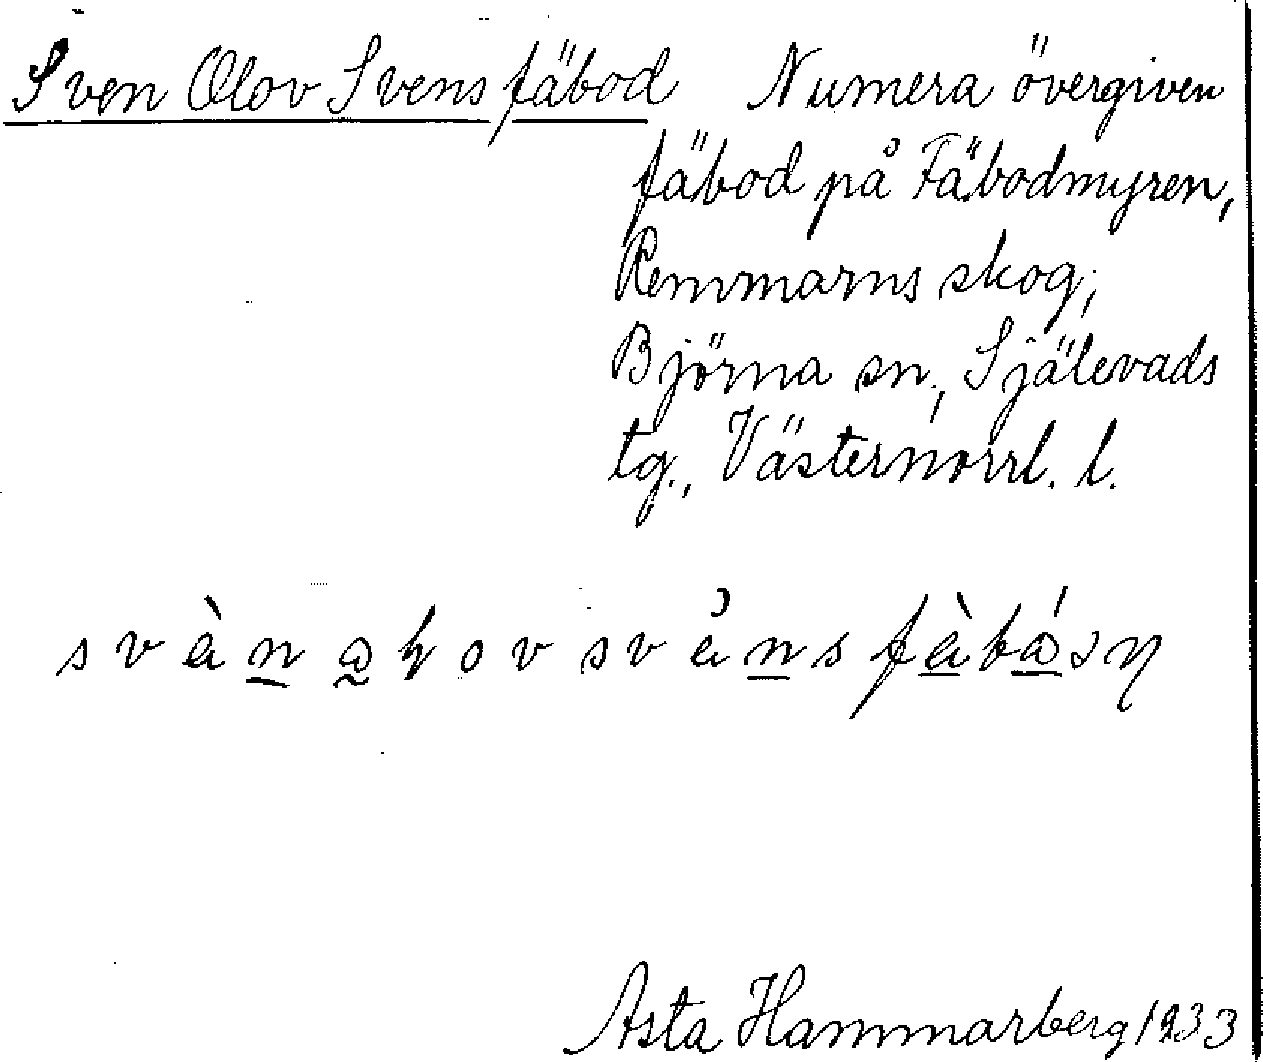 Sven Olov Svens fäbod Numera övergiven
fäbod på Fäbodmyren,
Remmarns skog,
Björna sn, Själevads
tg., Västernorrl. l.
Asta Hammarberg 1933